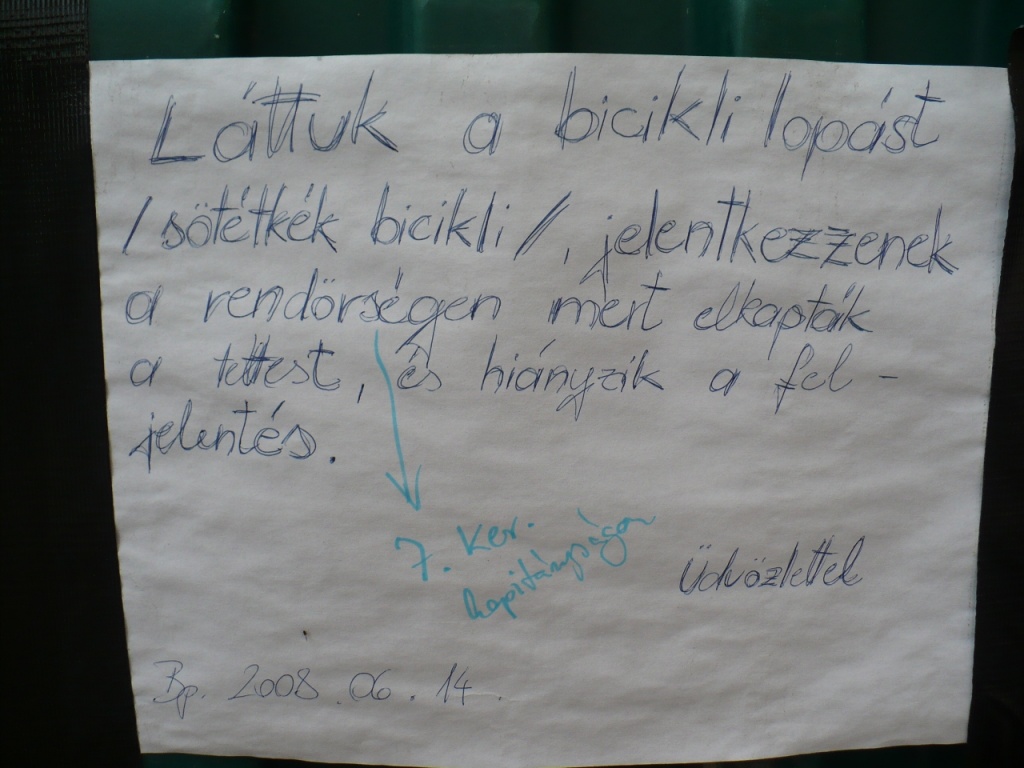 Láttuk a bicikli lopást
/sötétkék bicikli/, jelentkezzenek
a rendőrségen mert elkapták
a tettest, és hiányzik a fel-
jelentés.
7. Ker.
kapitányságon
Üdvözlettel
Bp. 2008 06. 14.